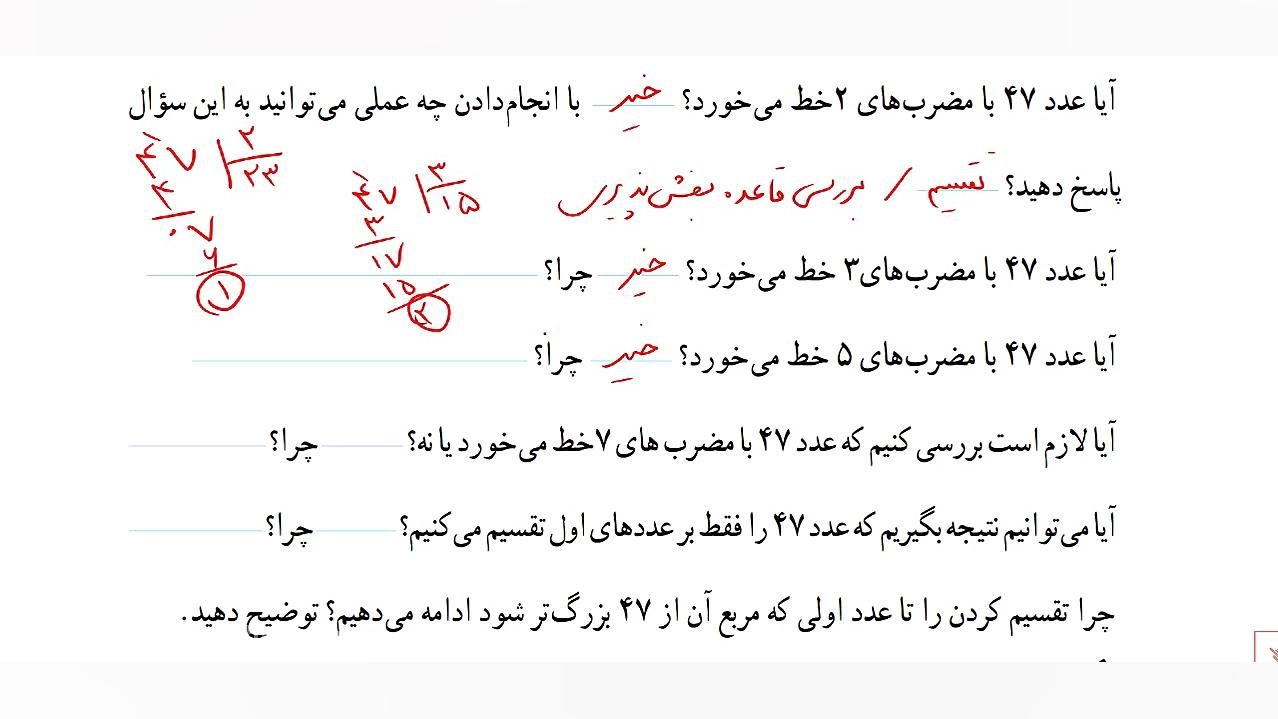 آیا عدد ۴۷ با مضرب‌های ۲ خط می‌خورد؟ خیر با انجام‌دادن چه عملی می‌توانید به این سؤال
پاسخ دهید؟ تقسیم / بررسی قاعده بخش پذیری
۴۷ | ۲
۲۳
۴
۰۷
۶
۱
۴۷ | ۳
۱۵
۳
۱۷
۱۵
۲
آیا عدد ۴۷ با مضرب‌های ۳ خط می‌خورد؟ خیر چرا؟
آیا عدد ۴۷ با مضرب‌های ۵ خط می‌خورد؟ خیر چرا؟
آیا لازم است بررسی کنیم که عدد ۴۷ با مضرب های ۷ خط می‌خورد یا نه؟ چرا؟
آیا می‌توانیم نتیجه بگیریم که عدد ۴۷ را فقط بر عددهای اول تقسیم می‌کنیم؟ چرا؟
چرا تقسیم کردن را تا عدد اولی که مربع آن از ۴۷ بزرگ‌تر شود ادامه می‌دهیم؟ توضیح دهید.